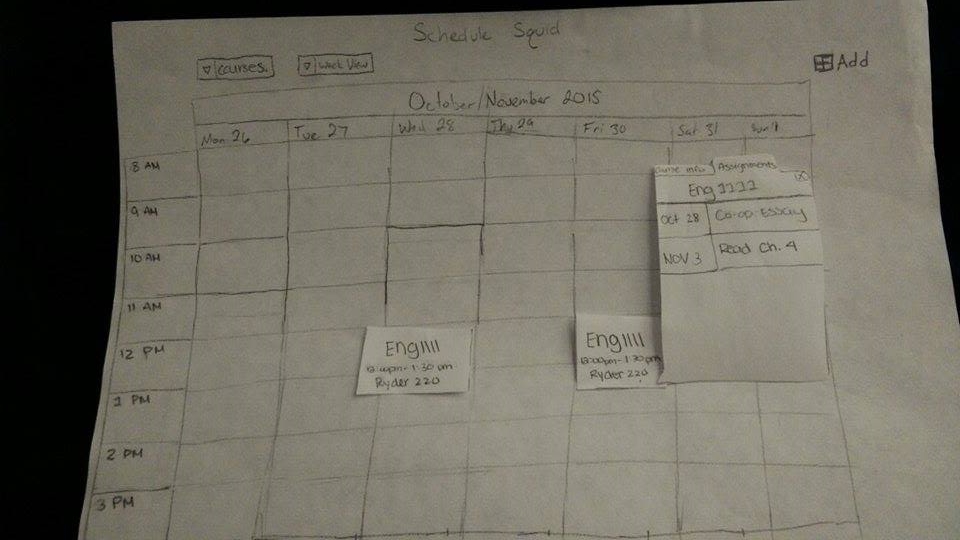 Schedule Squid
▽ courses.
▽ Week View
Add
October/November 2015
Mon 26
Tue 27
Wed 28
Thu 29
Fri 30
Sat 31
Sun 1
8 AM
9 AM
10 AM
11 AM
12 PM
1 PM
2 PM
3 PM
Eng1111
12:00pm-1:30pm
Ryder 220
Eng1111
12:00pm-1:30pm
Ryder 220
Course info
Assignments
Eng 1111
Oct 28
Co-op Essay
NOV 3
Read Ch. 4